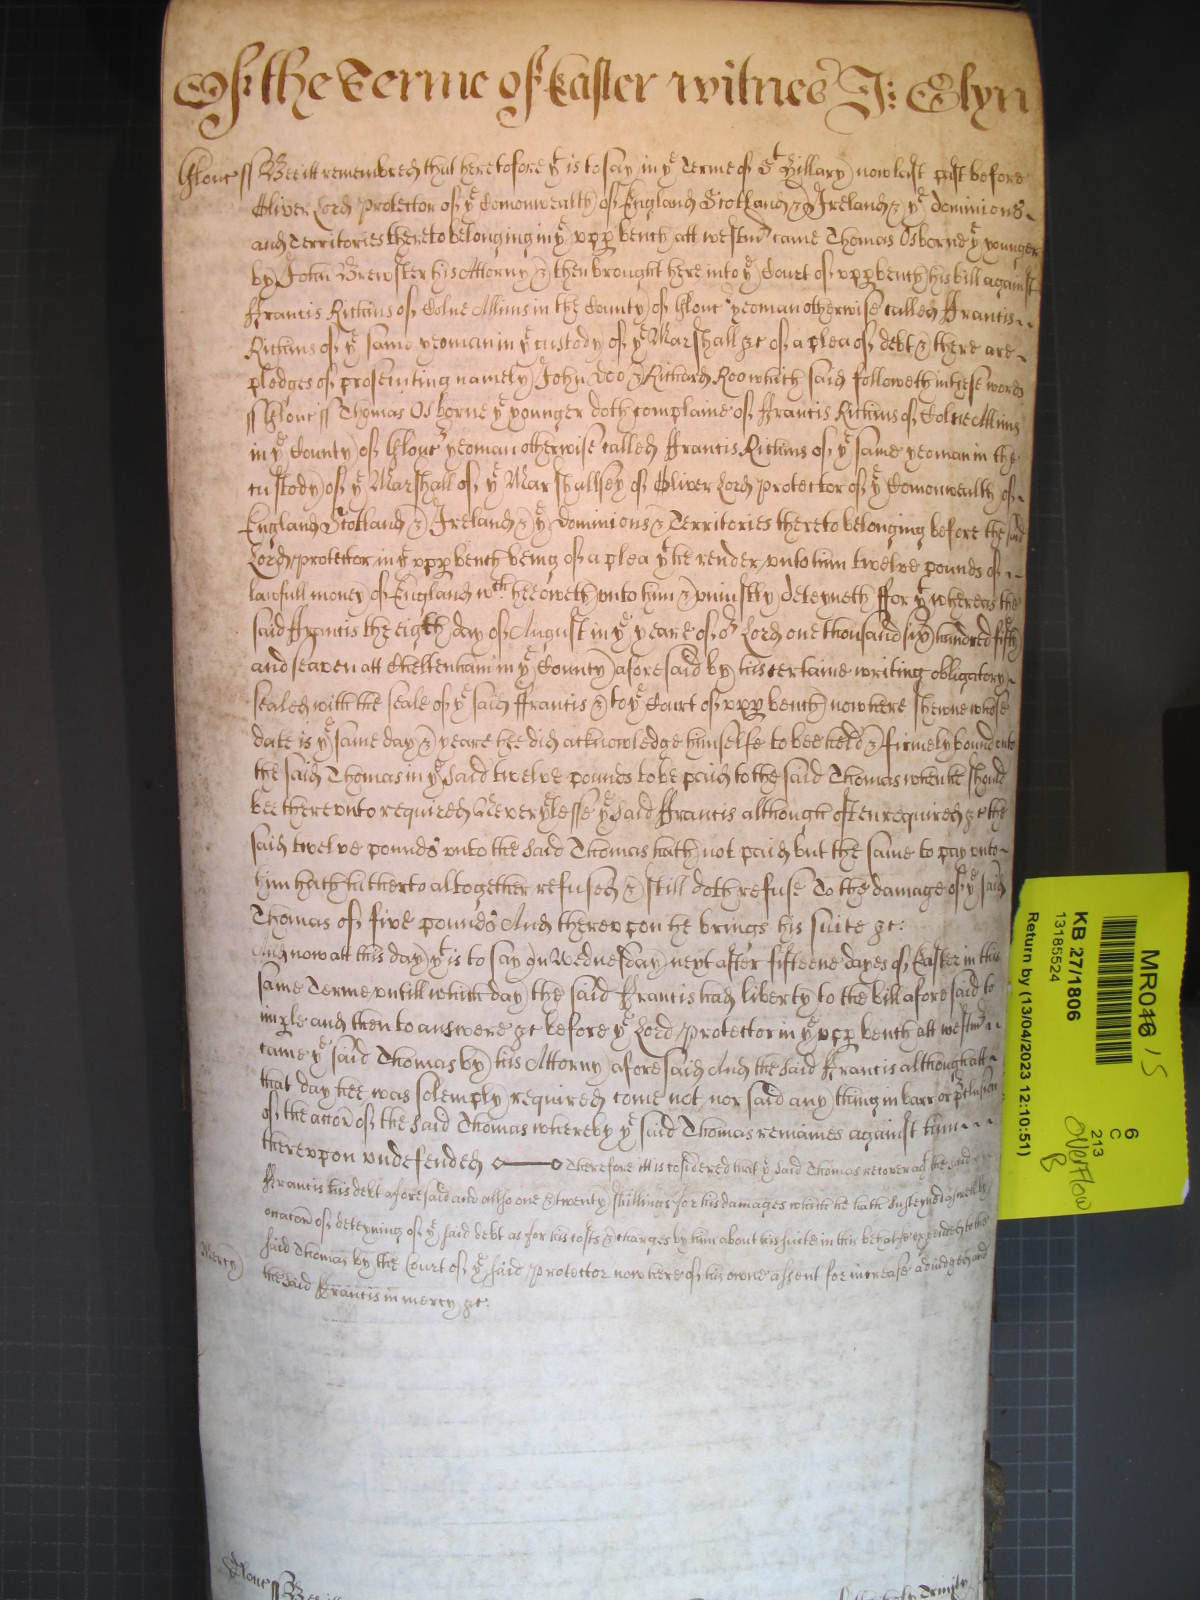 Of the Terme of Easter witnes J: Glyn
Glouc ss Bee itt remembred that heretofore yt is to say in ye Terme of St Hillary now last past before
Oliver Lord Protector of ye Comonwealth of England Scotland & Ireland & ye dominions
and Territories thereto belonging in ye upp bench att westmr came Thomas Osborne ye younger
by John Brewster his Attorny & then brought here into ye Court of upp bench his bill against
ffrancis Rickins of Colne Allins in the County of Glouc yeoman otherwise called ffrancis
Rickins of ye same yeoman in ye custody of ye Marshall &c of a plea of debt & there are
pledges of prosecuting namely John Doo & Richard Roo which said followeth in these words
ss Glouc ss Thomas Osborne ye younger doth complaine of ffrancis Rickins of Colne Allins
in ye County of Glouc yeoman otherwise called ffrancis Rickins of ye same yeoman in the
custody of ye Marshall of ye Marshallsey of Oliver Lord Protector of ye Comonwealth of
England Scotland & Ireland & ye dominions & Territories thereto belonging before the said
Lord Protector in ye upp bench being of a plea yt he render unto him twelve pounds of
lawfull money of England wch hee oweth unto him & uniustly deteyneth ffor yt whereas the
said ffrancis the eigth day of August in ye yeare of or Lord one thousand six hundred fifty
and seaven att Cheltenham in ye County aforesaid by his certaine writing obligatory
sealed with the seale of ye said ffrancis & to ye Court of upp bench now here shewne whose
date is ye same day & yeare hee did acknowledge himselfe to bee held & firmely bound unto
the said Thomas in ye said twelve pounds to be paid to the said Thomas when he should
bee thereunto required Neverylesse ye said ffrancis although often required &c the
said twelve pounds unto the said Thomas hath not paid but the same to pay unto
him hath hitherto altogether refused & still doth refuse To the damage of ye said
Thomas of five pounds And thereupon he brings his suite &c:
And now att this day yt is to say on Wednesday next after fifteene dayes of Easter in this
same Terme untill which day the said ffrancis had liberty to the bill aforesaid to
imple and then to answere &c before ye Lord Protector in ye upp bench att westmr
came ye said Thomas by his Attorny aforesaid And the said ffrancis although att
that day hee was solemply required come not nor said any thing in barr or pclusion
of the accon of the said Thomas whereby ye said Thomas remaines against him
thereupon undefended Therefore itt is cosidered that ye said Thomas recover agt the said
ffrancis his debt aforesaid and allso one & twenty shillings for his damages which he hath susteyned aswell by
occacon of deteyning of ye said debt as for his costs & charges by him about his suite in this behalfe expended to the
said Thomas by the Court of ye said Protector now here of his owne assent for increase adiudged and
Mercy
the said ffrancis in mercy &c:
Glouc ss Bee itt
Trinity
MR046
KB 27/1806
13185524
Return by (13/04/2023 12:10:51)
6
C
213
Overflow
B